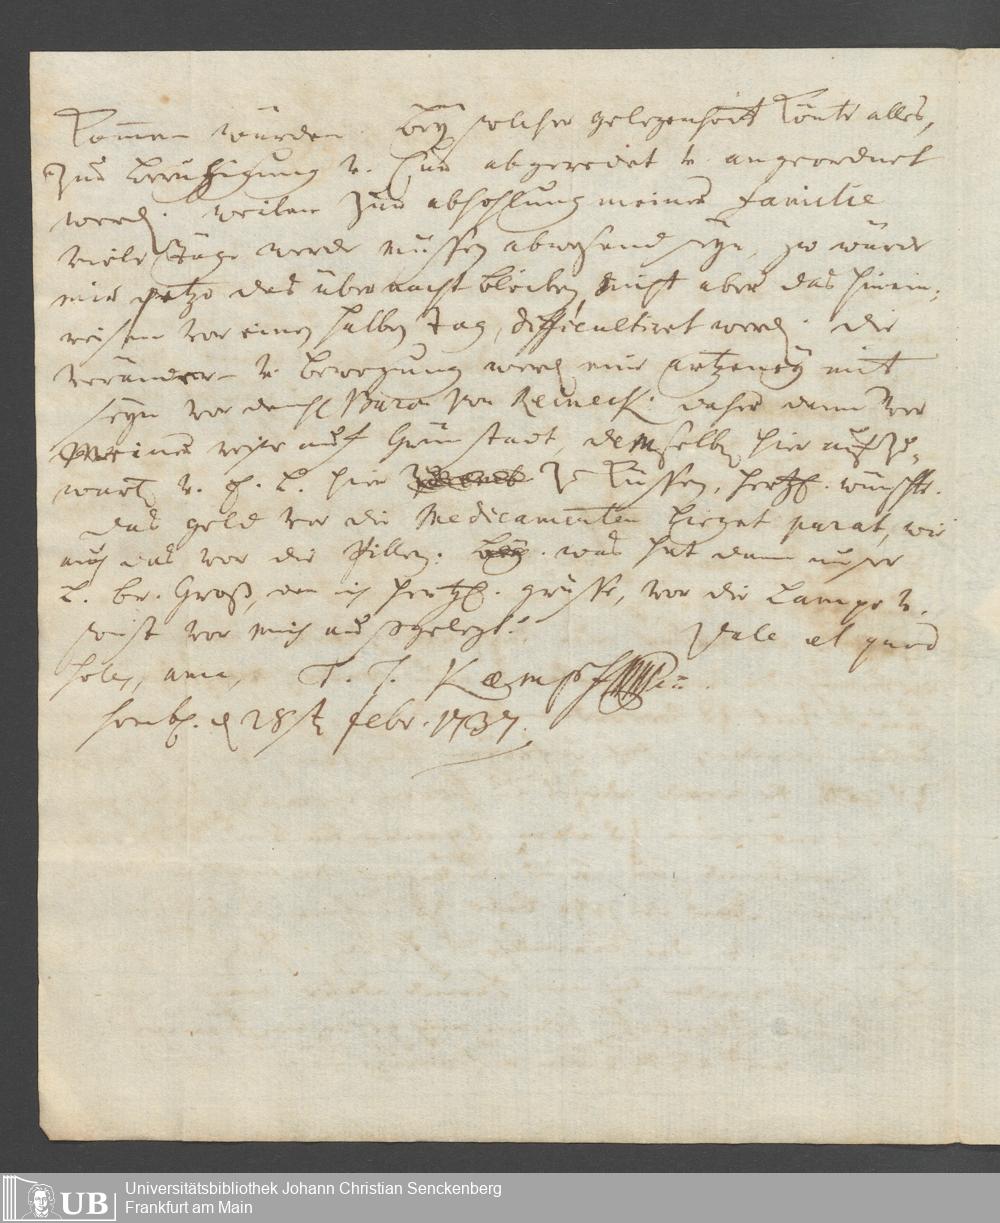 kom̅en würden. bey solcher gelegenheit könte alles,
zur beruhigung u. hin abgeredet u. angeordnet
werd. weilen zur abhohlung meiner familie
viele Täge werde müssen abwesend seyn, so würde
mir jetzo das übernacht bleiben, nicht aber das hinein-
reisen vor einen halben Tag, difficultiret werd. die
veränder- u. bewegung werd mir artzeney mit
seyn vor den H Baro von Reineck. daher dann vor
meiner reise auf Grünstadt, demselben hier aufzu-
wart u. hier zu küssen, hertzl. wünsche.
das geld vor die Medicamenten lieget parat, wie
auch das vor die Pillen. was hat dann unser
L. br. Groß, den ich hertzl. grüsse, vor die Lampe u.
sonst vor mich ausgelegt? Vale et quod
soles, ama, Kaempf
homb. d 28st febr. 1737.
UB
Universitätsbibliothek Johann Christian Senckenberg
Frankfurt am Main